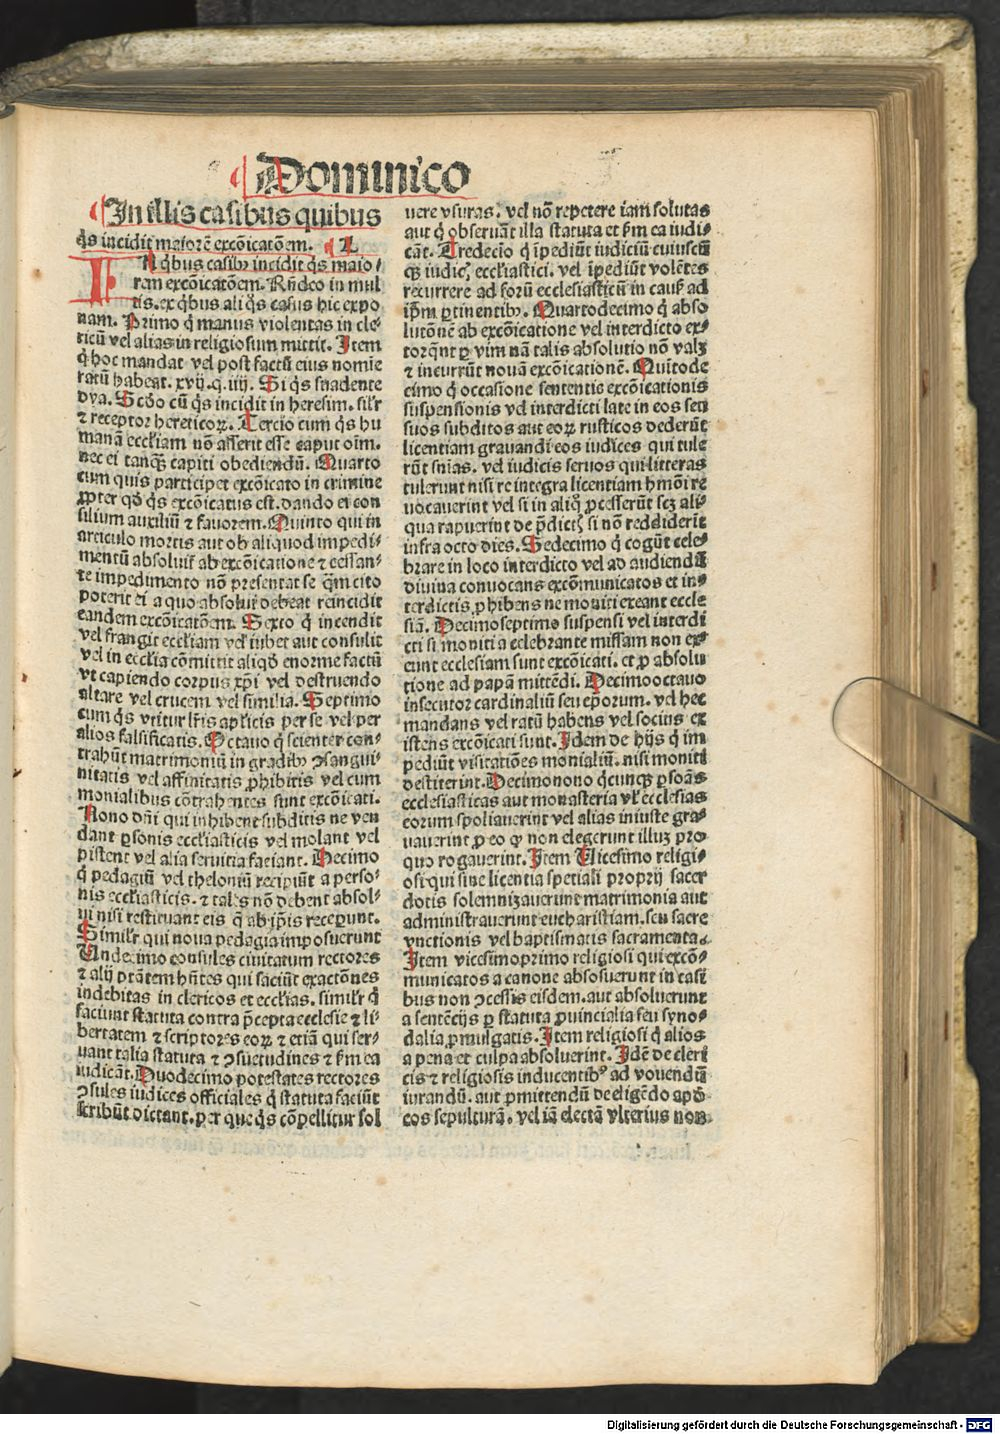 Dominico
In illis casibus quibus
q̇s incidit maiorē excōicatōem. L
IN qͥbus casibꝫ incidit q̇s maio⸗
rem excōicatōem. Rn̄deo in mul
tis. ex qͥbus aliq̇s casus hic expo
nam. Primo q̇ manus violentas in cle⸗
ricū vel alias in religiosum mittit. Item
q̇ hoc mandat vel post factū eius nomīe
ratū habeat. xvij. q. iiij. Si q̇s suadente
dya. Scd̄o cū q̇s incidit in heresim. sil̄r
⁊ receptor hereticoꝝ. Tercio cum q̇s hu
manā eccl̄iam nō asserit esse caput oīm.
nec ei tanqᷓꝫ capiti obediendū. Quarto
cum quis participet excōicato in crimine
ꝓpter qd̄ q̇s excōicatus est. dando ei con
silium auxiliū ⁊ fauorem. Quinto qui in
articulo mortis aut ob aliquod impedi⸗
mentū absoluit̄ ab excōicatione ⁊ cessan⸗
te impedimento nō presentat se qᷓm cito
poterit ei a quo absolui debeat reincidit
eandem excōicatōem. Sexto q̇ incendit
vel frangit eccl̄iam vel iubet aut consulit
vel in eccl̄ia cōmittit aliqd̄ enorme factū
vt capiendo corpus xp̄i vel destruendo
altare vel crucem vel similia. Septimo
cum q̇s vtitur lr̄is apl̄icis per se vel per
alios falsificatis. Octauo q̇ scienter con⸗
trahūt matrimoniū in gradibꝫ ꝯsangui⸗
nitatis vel affinitatis ꝓhibitis vel cum
monialibus cōtrahentes sunt excōicati.
Nono dn̄i qui inhibent subditis ne ven
dant ꝑsonis eccl̄iasticis vel molant vel
pistent vel alia seruitia faciant. Decimo
q̇ pedagiū vel theloniū recipiūt a perso⸗
nis eccl̄iasticis. ⁊ tales nō debent absol⸗
ui nisi restituant eis q̄ ab ip̄is receꝑunt.
Simil̄r qui noua pedagia imposuerunt
Undecimo consules ciuitatum rectores
⁊ alij ptātem hn̄tes qui faciūt exactōnes
indebitas in clericos et eccl̄ias. simil̄r q̇
faciunt statuta contra p̄cepta ecclesie ⁊ li⸗
bertatem ⁊ scriptores eoꝝ ⁊ etiā qui ser⸗
uant talia statuta ⁊ ꝯsuetudines ⁊ ẜm ea
iudicāt. Duodecimo potestates rectores
ꝯsules iudices officiales q̇ statuta faciūt
scribūt dictant. per que q̇s cōpellitur sol
uere vsuras. vel nō repetere iam solutas
aut q̇ obseruāt illa statuta et ẜm ea iudi⸗
cāt. Tredecio q̇ īpediūt iudiciū cuiuscū
qꝫ iudicꝭ eccl̄iastici. vel īpediūt volētes
recurrere ad forū ecclesiasticū in causꝭ ad
ip̄m ꝑtinentibꝫ. Quartodecimo q̇ abso
lutōnē ab excōicatione vel interdicto ex⸗
torqn̄t ꝑ vim nā talis absolutio nō valꝫ
⁊ incurrūt nouā excōicationē. Quītode
cimo q̇ occasione sententie excōicationis
suspensionis vel interdicti late in eos seu
suos subditos aut eoꝝ rusticos dederūt
licentiam grauandi eos iudices qui tule
rūt sn̄ias. vel iudicis seruos qui litteras
tulerunt nisi re integra licentiam hmōi re
uocauerint vel si in aliq̇ ꝓcesserūt scꝫ ali⸗
qua rapuerint de p̄dictꝭ si nō reddiderīt
infra octo dies. Sedecimo q̇ cogūt cele⸗
brare in loco interdicto vel ad audiendā
diuina conuocans excōmunicatos et in⸗
terdictis ꝓhibens ne moniti exeant eccle
siā. Decimoseptimo suspensi vel interdi
cti si moniti a celebrante missam non ex⸗
eunt ecclesiam sunt excōicati. et ꝓ absolu
tione ad papā mittēdi. Decimooctauo
insecutor cardinaliū seu ep̄orum. vel hec
mandans vel ratū habens vel socius ex
istens excōicati sunt. Idem de hijs q̇ im
pediūt visitatiōes monialiū. nisi moniti
destiterint. Decimonono qͥcunqꝫ ꝑsoās
ecclesiasticas aut monasteria vl̄ ecclesias
eorum spoliauerint vel alias iniuste gra⸗
uauerint ꝓ eo ꝙ non elegerunt illuꝫ pro
quo rogauerint. Item Uicesimo religi⸗
osi qui sine licentia speciali proprij sacer
dotis solemnizauerunt matrimonia aut
administrauerunt eucharistiam. seu sacre
vnctionis vel baptismatis sacramenta.
Item vicesimoprimo religiosi qui excō⸗
municatos a canone absoluerunt in casi
bus non ꝯcessis eisdem. aut absoluerunt
a sentēcijs ꝑ statuta ꝓuincialia seu syno⸗
dalia ꝓmulgatis. Item religiosi q̇ alios
a pena et culpa absoluerint. Idē de cleri
cis ⁊ religiosis inducentibꝰ ad vouendū
iurandū. aut ꝓmittendū de eligēdo apd̄
eos sepulturā. vel iā electā vlterius non
Digitalisierung gefördert durch die Deutsche Forschungsgemeinschaft - DFG